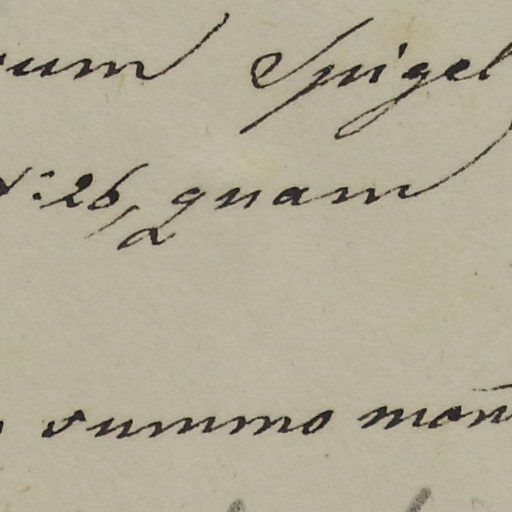 um Spigel
: 26/2 quam
summo mon